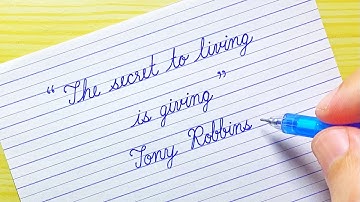 “The secret to living
is giving”
Tony Robbins